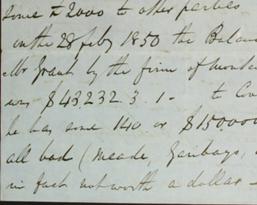 some $ 2000 to other parties
on the 28 feby 1850 the Balan
Mr Grant by the firm of
was $43232.3.1 - to
he has some 140 or $150000
all bad (Meade, Garibays,
in fact not worth a dollar -